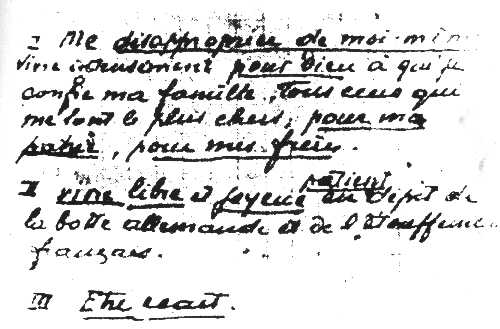 I Me désapproprier de moi-mêm
vivre intensément pour Dieu à qui je
confie ma famille, tous ceux qui
me sont le plus chers, pour ma
patrie, pour mes frères.
II vivre libre et joyeux patient en dépit de
la botte allemande et de l'étouffeme
français.
III Etre exact.